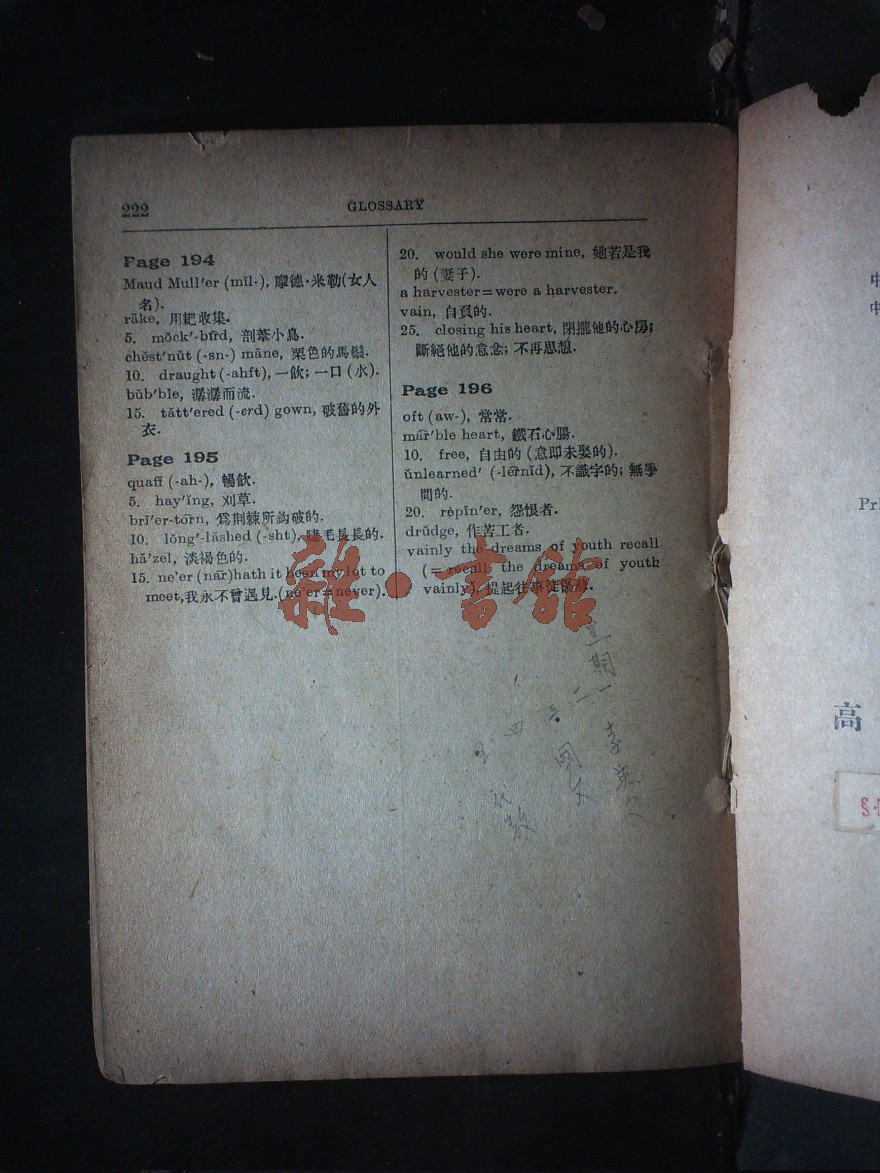 222
GLOSSARY
Page 194
Maud Mull′er (mŭl-), 摩德·米勒(女人
名).
rāke, 用耙收集.
5. mŏck′-bĭrd, 剖葦小鳥.
chĕst′nŭt (-sn-) māne, 栗色的馬鬃.
10. draught (-ahft), 一飲; 一口 (水).
bŭb′ble, 潺潺而流.
15. tătt′ered (-erd) gown, 破舊的外
衣.
Page 195
quaff (-ah-), 暢飲.
5. hay′ĭng, 刈草.
brī′er-tōrn, 爲荆棘所鈎破的.
10. lŏng′-lăshed (-sht), 睫毛長長的.
hā′zel, 淡褐色的.
15. ne'er (nâr) hath it been my lot to
meet, 我永不曾遇見. (ne'er=never).
20. would she were mine, 她若是我
的 (妻子).
a harvester=were a harvester.
vain, 自負的.
25. closing his heart, 閉攏他的心房;
斷絕他的意念; 不再思想.
Page 196
oft (aw-), 常常.
mär′ble heart, 鐵石心腸.
10. free, 自由的 (意即未娶的).
ŭnlearned′ (-lẽrnĭd), 不識字的; 無學
問的.
20. rėpīn′er, 怨恨者.
drŭdge, 作苦工者.
vainly the dreams of youth recall
(=recall the dreams of youth
vainly), 提起往事徒傷悲.
雜·書館
星期一
二
四
代數
高
Pr
中
中
§